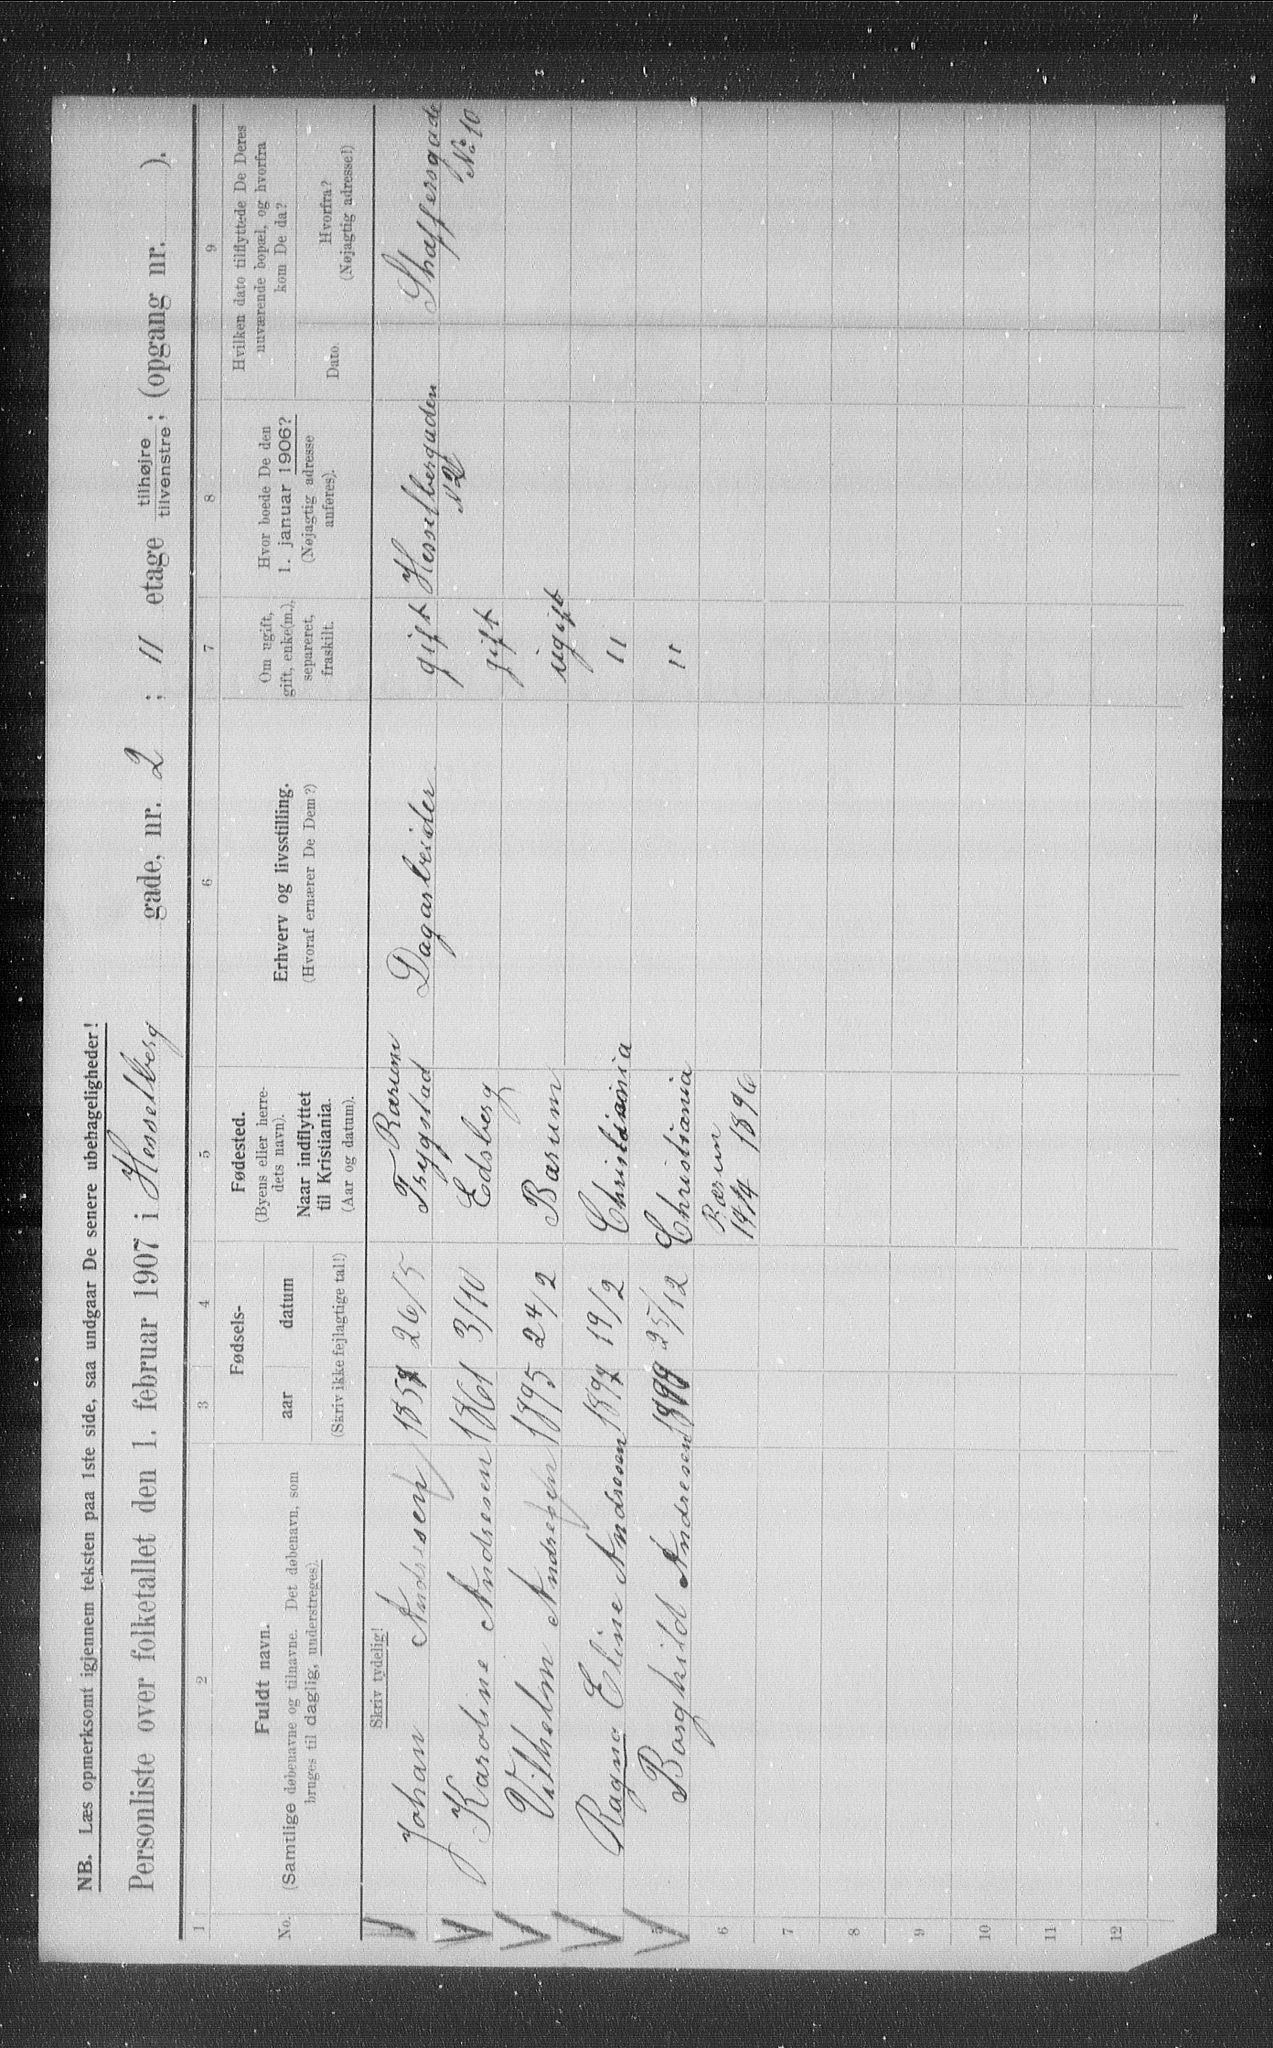 NB. Læs opmerksomt igjennem teksten paa 1ste side, saa undgaar De senere ubehageligheder!
Personliste over folketallet den 1. februar 1907 i Hesselberg gade, nr. 2 ; 11 etage tilhøjre tilvenstre ; (opgang nr. ).
1 2 3 4 5 6 7 8 9
No.
Fuldt navn.
(Samtlige døbenavne og tilnavne. Det døbenavn, som
bruges til daglig, understreges).
Fødsels-
aar datum
(Skriv ikke fejlagtige tal!)
Fødested.
(Byens eller herre-
dets navn).
Naar indflyttet
til Kristiania.
(Aar og datum).
Erhverv og livsstilling.
(Hvoraf ernærer De Dem?)
Om ugift,
gift, enke(m.),
separeret,
fraskilt.
Hvor boede De den
1. januar 1906?
(Nøjagtig adresse
anføres).
Hvilken dato tilflyttede De Deres
nuværende bopæl, og hvorfra
kom De da?
Dato.
Hvorfra?
(Nøjagtig adresse!)
Skriv tydelig!
Johan Andresen 26/5 Trygstad Dagarbeider gift Hesselbergaden Shaffersgade
N 2 No 10
Karoline Andresen 1861 3/10 Edsberg gift
Vilhelm Andresen 1895 24/2 Bærum ugift
Ragna Eline Andresen 1897 19/2 Christiania "
5 Borghild Andresen 25/12 Christiania "
6 Bærum
14/4 1896
7
8
9
10
11
12